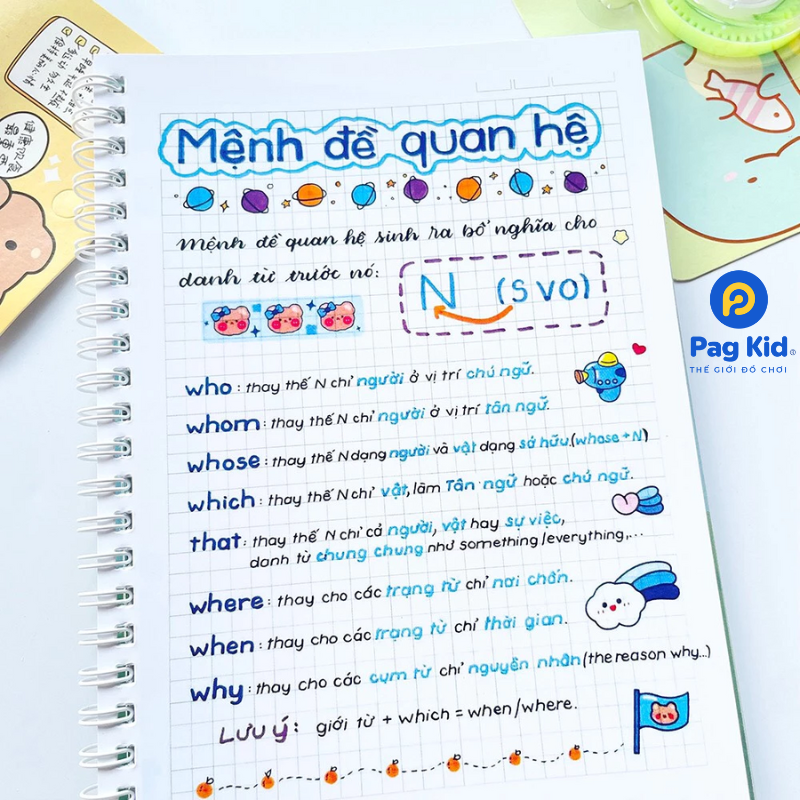 Mệnh đề quan hệ
Mệnh đề quan hệ sinh ra bổ nghĩa cho
danh từ trước nó:
N (S VO)
who: thay thế N chỉ người ở vị trí chủ ngữ.
whom: thay thế N chỉ người ở vị trí tân ngữ.
whose: thay thế N dạng người và vật dạng sở hữu.(whose + N)
which: thay thế N chỉ vật, làm Tân ngữ hoặc chủ ngữ.
that: thay thế N chỉ cả người, vật hay sự việc,
danh từ chung chung như something/everything,...
where: thay cho các trạng từ chỉ nơi chốn.
when: thay cho các trạng từ chỉ thời gian.
why: thay cho các cụm từ chỉ nguyên nhân (the reason why...)
Lưu ý: giới từ + which = when/where.
Pag Kid®
THẾ GIỚI ĐỒ CHƠI